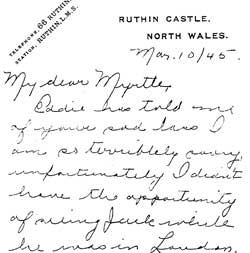 TELEPHONE, 66 RUTHIN.
STATION, RUTHIN, L.M.S.
RUTHIN CASTLE,
NORTH WALES.
Mar. 10/45.
My dear Myrtle,
Eddie has told me
of your sad loss I
am so terribly sorry,
unfortunately I didn't
have the opportunity
of seeing Jack while
he was in London.